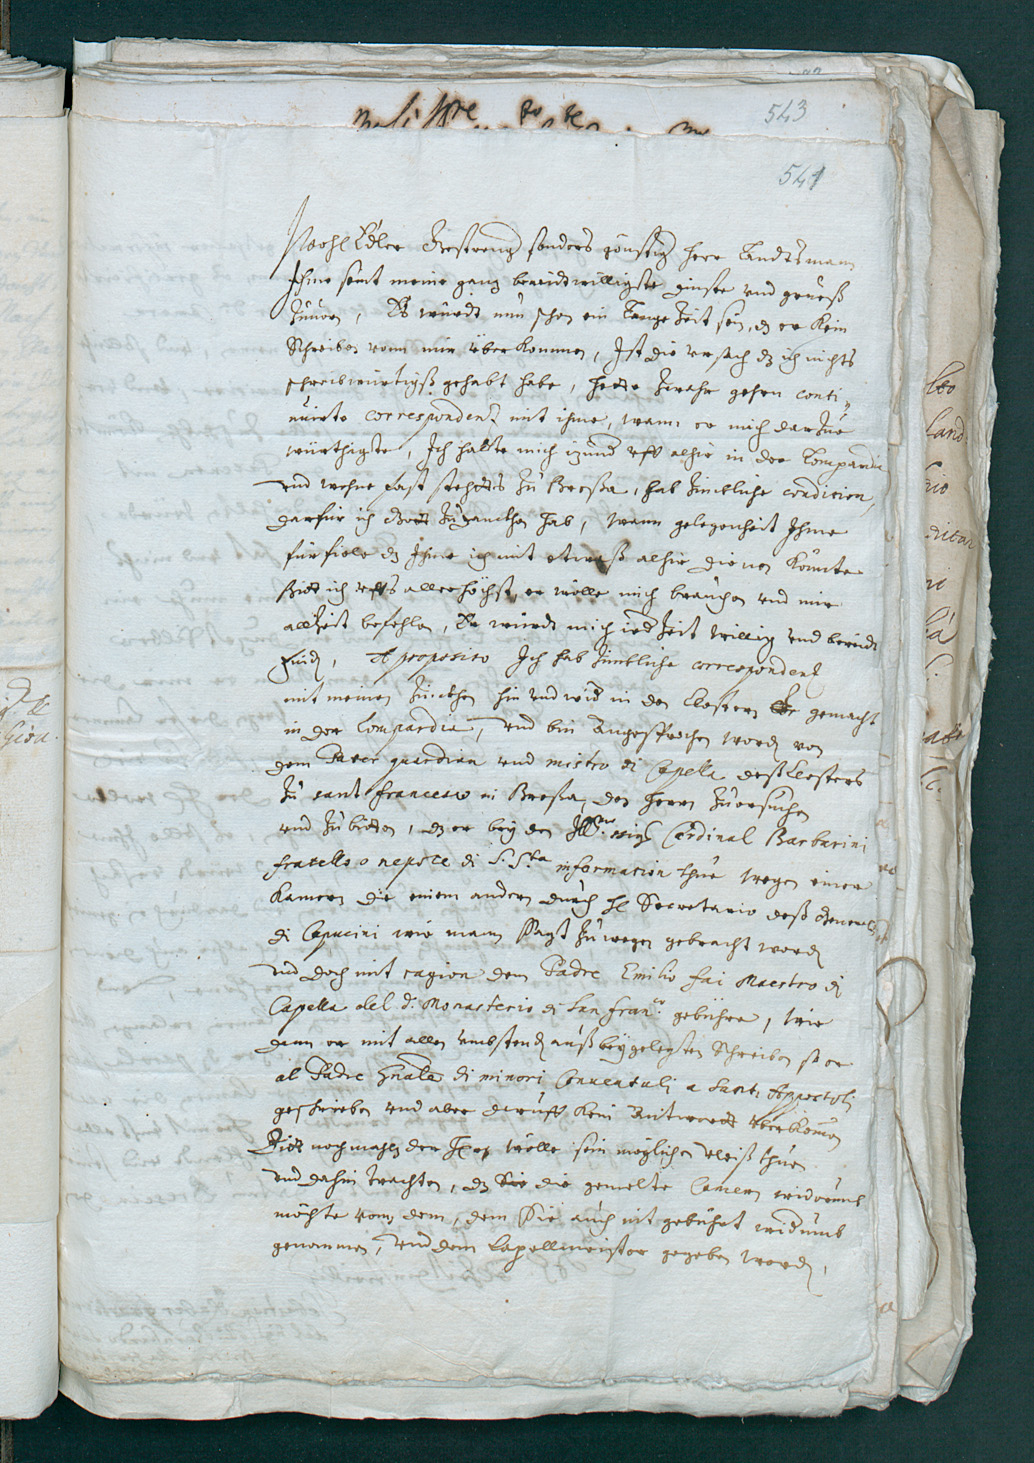 543
541
Wohl Edler Gestreng sonders günstig Herr Landtsman
Ihme seint meine ganz bereidtwilligste dinste und grueß
Zuuorn, Es würdt nun schon ein lange Zeit sein, dz er kein
Schreiben vonn mir überkommen, Ist die ursach dz ich nichts
schreibwürtigß gehabt habe, hette zwahr gehrn conti-
nuirte correspondentz mit ihme, wann er mich darzue
würthigte, Ich halte mich izund uff alhie in der Lompardia
und wohne fast stehdts zu Breßa, hab zimbliche condition,
darfür ich Gott zu dancken hab, wann gelegenheit Ihme
fürfiele dz Ihme ich mit etwaß alhie dienen könnte
Bitt ich uffs allerhöchst er wölle mich brauchen und mir
allzeit befehlen, Er würdt mich ied Zeit willig und bereidt
find, A proposito Ich hab zimbliche correspondentz
mit meinen hin und wid in den Clostern gemacht
in der Lompardia, und bin angesprochen word von
dem Pater guardian und mistro di Capella deß Closters
zu sant francesco in Breßa, den Herrn zuersuchen
und zu bitten, dz er bey den Ill.mo Cardinal Barbarini
fratello o nepote di S. S.ta information thue wegen einer
Kamern die einem andern durch Secretario deß Generals
di Capucini wie mann sagt zu wegen gebracht word
und doch mit ragion dem Padre Emilio fai Maestro di
Capella del d. Monasterio di San fran.co gebühre, wie
dann er mit allen umbstend auß beygelegten Schreiben so er
al Padre gnale di minori Conventuali a Santi Appostoli
geschrieben und aber daruff kein Antwordt überkommen
Bitt nochmahls der Herr wölle sein möglichen vleiß thuen
und dahin trachten, dz die gemelte Camern widerumb
möchte vonn dem, dem Sie auch nit gebührt widumb
genommen, und dem Capellmeister gegeben word,